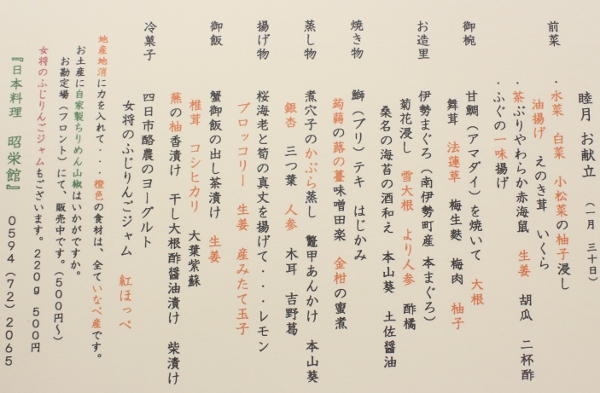 睦月 お献立 (一月 三十日)
前菜 ・水菜 白菜 小松菜の柚子浸し
油揚げ えのき茸 いくら
・茶ぶりやわらか赤海鼠 生姜 胡瓜 二杯酢
・ふぐの一味揚げ
御椀 甘鯛(アマダイ)を焼いて 大根
舞茸 法蓮草 梅生麩 梅肉 柚子
お造里 伊勢まぐろ(南伊勢町産 本まぐろ)
菊花浸し 雪大根 より人参 酢橘
桑名の海苔の酒和え 本山葵 土佐醤油
焼き物 鰤(ブリ)テキ はじかみ
蒟蒻の蕗の薹味噌田楽 金柑の蜜煮
蒸し物 煮穴子のかぶら蒸し 鼈甲あんかけ 本山葵
銀杏 三つ葉 人参 木耳 吉野葛
揚げ物 桜海老と筍の真丈を揚げて・・・レモン
ブロッコリー 生姜 産みたて玉子
御飯 蟹御飯の出し茶漬け 生姜
椎茸 コシヒカリ 大葉紫蘇
蕪の柚香漬け 干し大根酢醤油漬け 柴漬け
冷菓子 四日市酪農のヨーグルト
女将のふじりんごジャム 紅ほっぺ
地産地消に力を入れて・・・橙色の食材は、全ていなべ産です。
お土産に自家製ちりめん山椒はいかがですか。
お勘定場(フロント)にて、販売中です。(500円~)
女将のふじりんごジャムもございます。220g 500円
『日本料理 昭栄館』 0594(72)2065